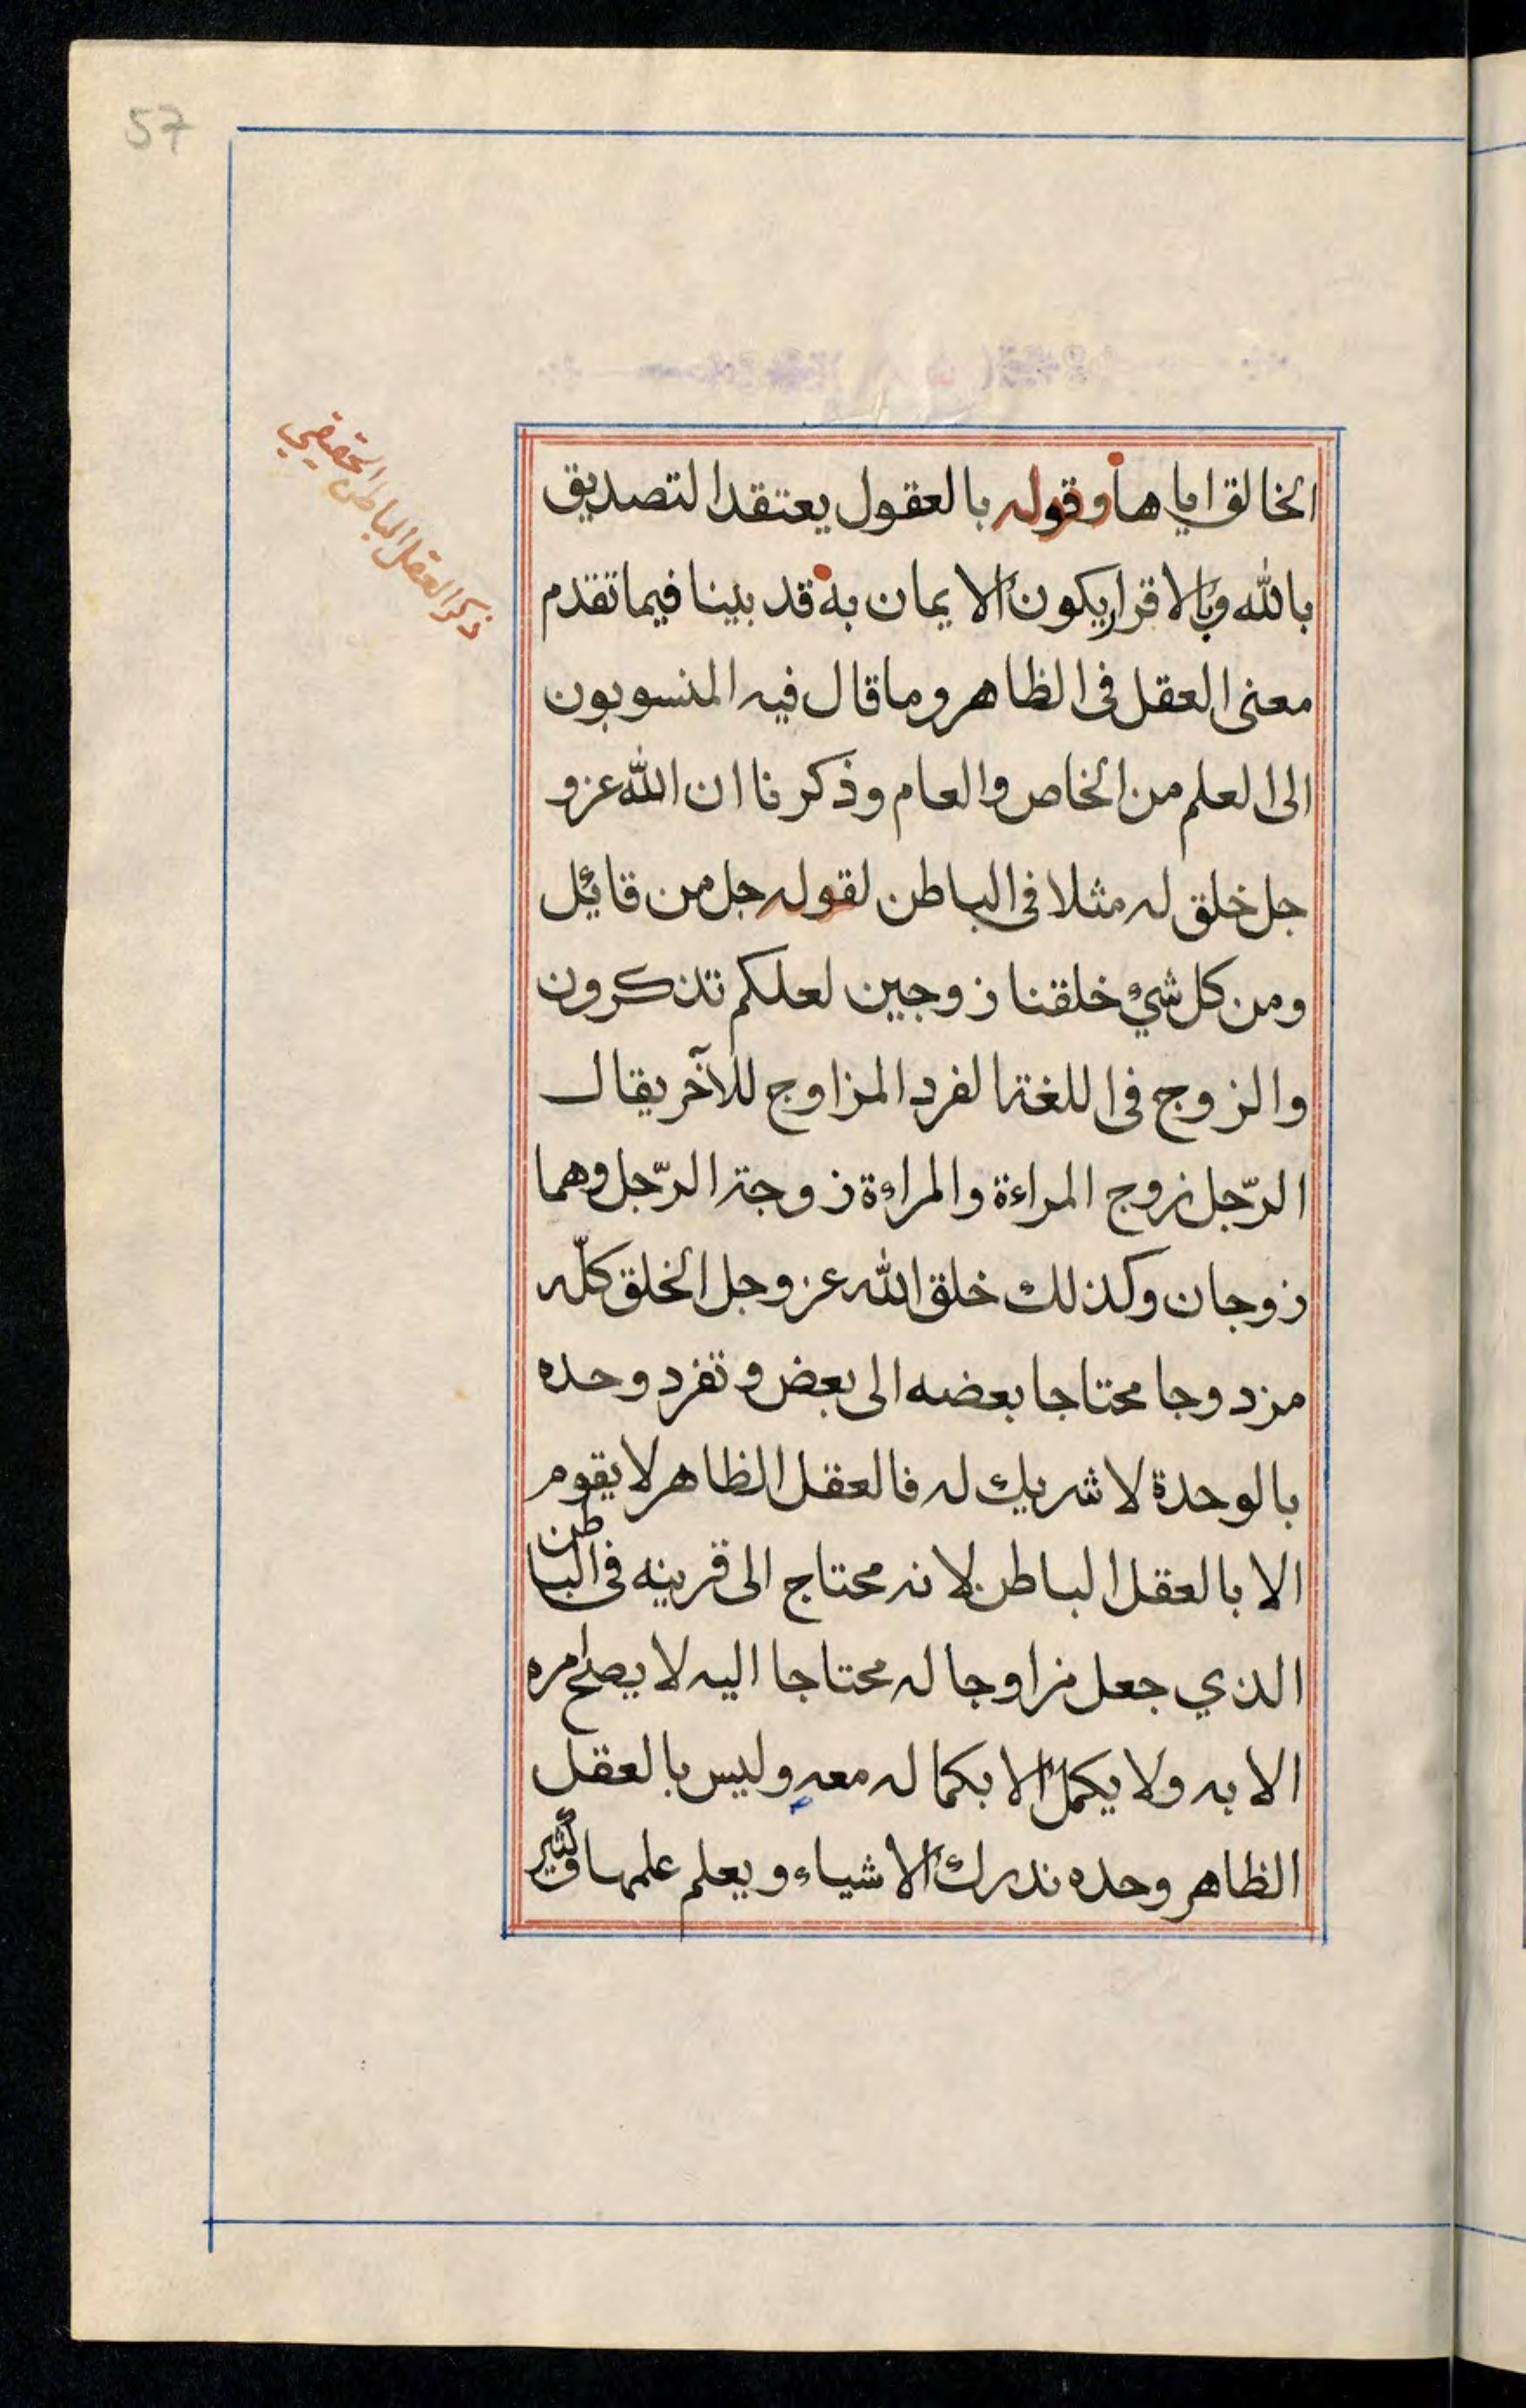 57
ذكر العقل الباطن الحقيقي
الخالق اياها وقوله بالعقول يعتقد التصديق
بالله وبالاقرار يكون الايمان به قد بينا فيما تقدم
معنى العقل فى الظاهر وما قال فيه المنسوبون
الى العلم من الخاص والعام وذكرنا ان الله عز و
جل خلق له مثلا فى الباطن لقوله جل من قائل
ومن كل شيء خلقنا زوجين لعلكم تذكرون
والزوج فى اللغة الفرد المزاوج للآخر يقال
الرّجل زوج المراءة والمراءة زوجة الرّجل وهما
زوجان وكذلك خلق الله عز وجل الخلق كلّه
مزدوجا محتاجا بعضه الى بعض وتفرد وحده
بالوحدة لا شريك له فالعقل الظاهر لا يقوم
الا بالعقل الباطن لانه محتاج الى قرينه فى الباطن
الذي جعل مزاوجا له محتاجا اليه لا يصلح امره
الا به ولا يكمل الا بكماله معه وليس بالعقل
الظاهر وحده ندرك الاشياء ويعلم علمها وكثير